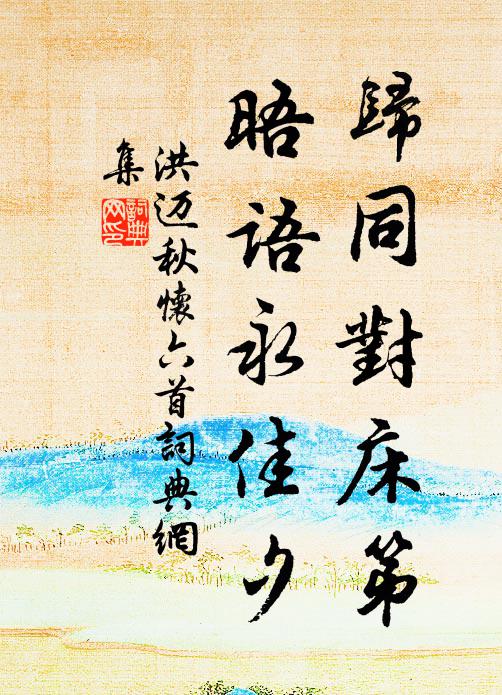 歸同對床第
晤語永佳夕
洪迈秋懷六首詞典網
集
詞典
网印